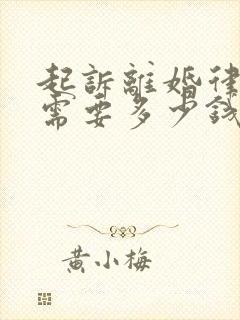 起訴離婚律
需要多少錢
黃小梅